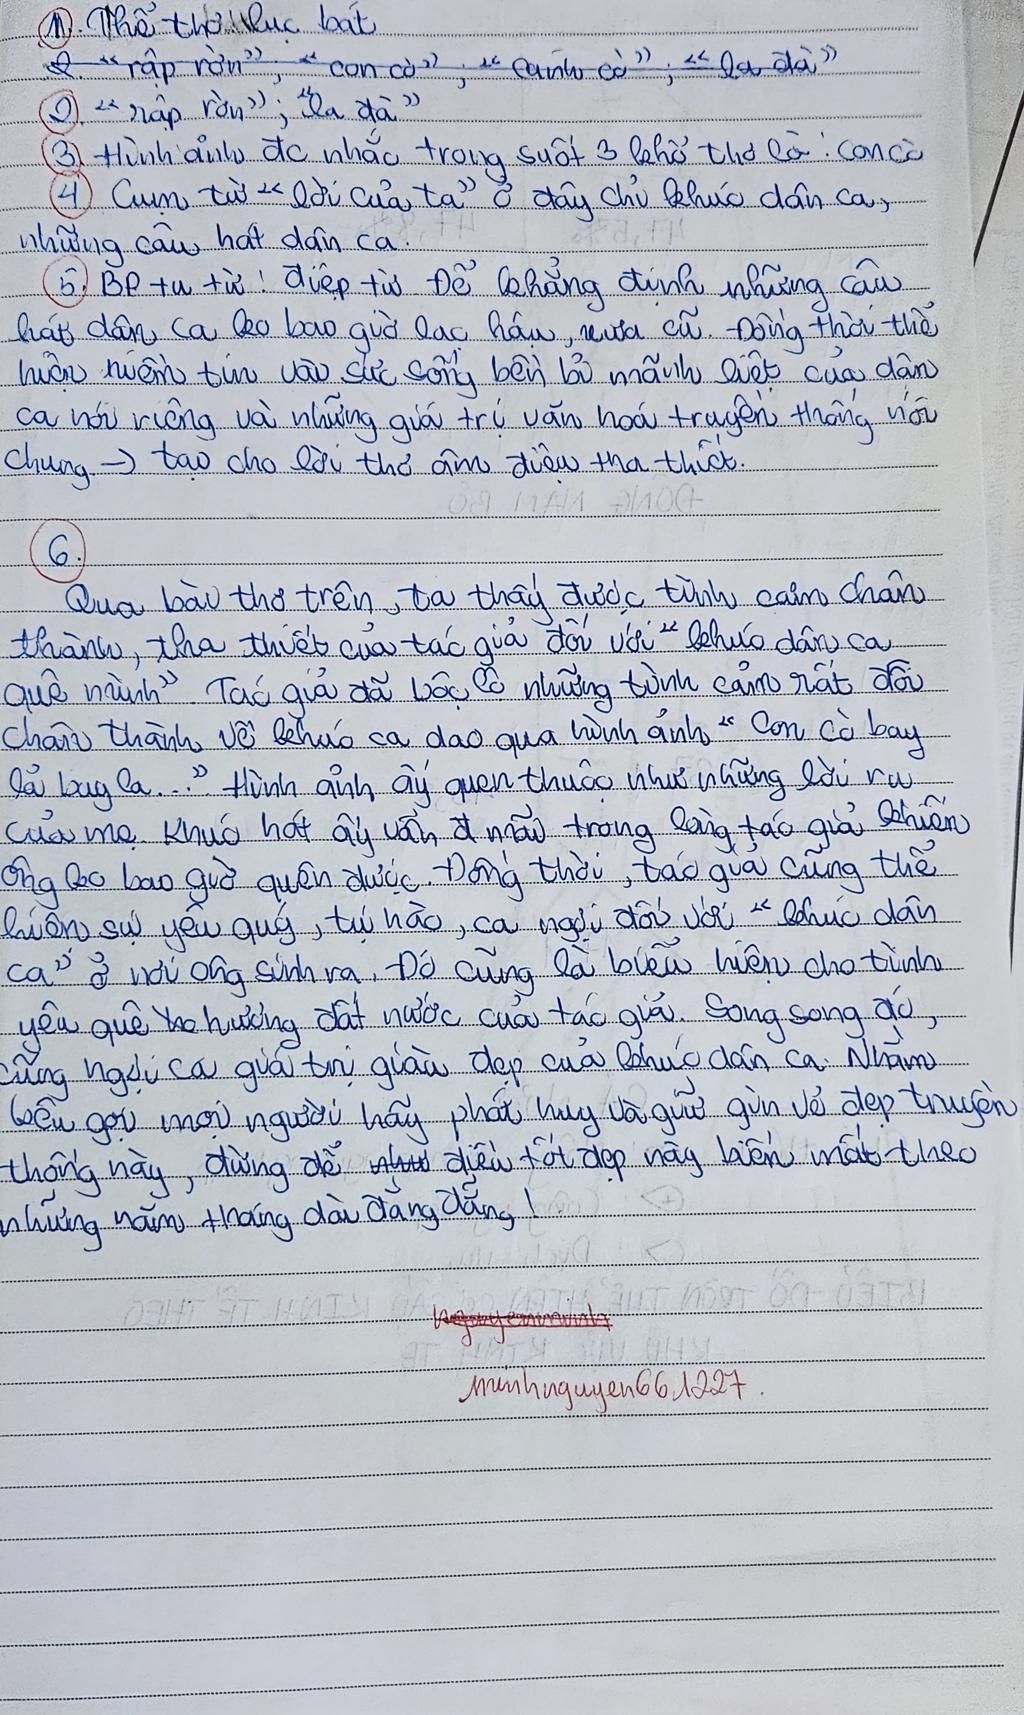 1. Thể thơ lục bát
2. "rập rờn"; "con cò"; "cánh cò"; "la đà"
2. "rập rờn"; "la đà"
3. Hình ảnh đc nhắc trong suốt 3 khổ thơ là: con cò
4. Cụm từ "lời của ta" ở đây chỉ khúc dân ca,
những câu hát dân ca.
5. BP tu từ: điệp từ Để khẳng định những câu
hát dân ca ko bao giờ lạc hậu, xưa cũ. Đồng thời thể
hiện niềm tin vào sức sống bền bỉ mãnh liệt của dân
ca nói riêng và những giá trị văn hoá truyền thống nói
chung → tạo cho lời thơ âm điệu tha thiết.
6.
Qua bài thơ trên, ta thấy được tình cảm chân
thành, tha thiết của tác giả đối với "khúc dân ca
quê mình" Tác giả đã bộc lộ những tình cảm rất đỗi
chân thành về khúc ca dao qua hình ảnh "Con cò bay
lả bay la..." Hình ảnh ấy quen thuộc như những lời ru
của mẹ. Khúc hát ấy vẫn mãi trong lòng tác giả khiến
ông ko bao giờ quên được. Đồng thời, tác giả cũng thể
hiện sự yêu quý, tự hào, ca ngợi đối với "khúc dân
ca" ở nơi ông sinh ra. Đó cũng là biểu hiện cho tình
yêu quê hương đất nước của tác giả. Song song đó,
cũng ngợi ca giá trị giàu đẹp của khúc dân ca. Nhằm
kêu gọi mọi người hãy phát huy và giữ gìn vẻ đẹp truyền
thống này, đừng để điều tốt đẹp này biến mất theo
những năm tháng dài đằng đẵng!
minhnguyen661227.